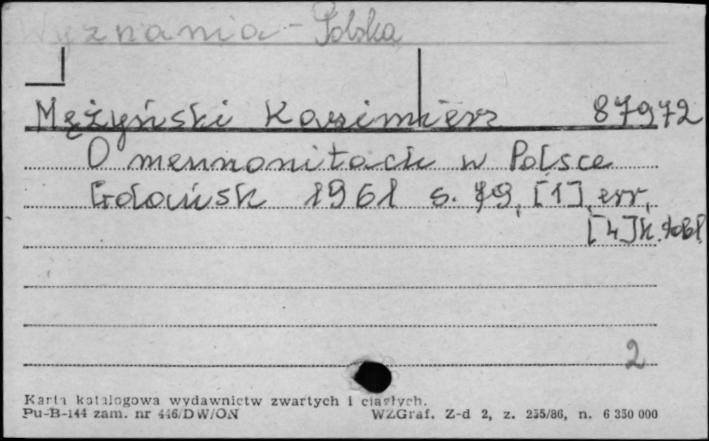 Wyznania - Polska
Mężyński Kazimierz 87972
O mennonitach w Polsce
Gdańsk 1961 s. 79, [1], err,
[4] k. tabl.
2
Karta katalogowa wydawnictw zwartych i ciągłych.
Pu-B-144 zam. nr 446/DW/ON WZGraf. Z-d 2, z. 255/86, n. 6 350 000